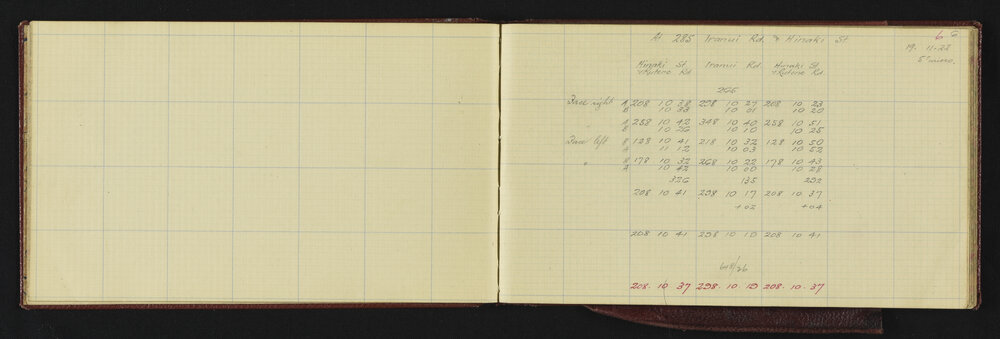 At 285 Iranui Rd. & Hinaki St
66
19. 11.28
5" micro.
Hinaki St Iranui Rd. Hinaki St
+ Rutene Rd + Rutene Rd.
285
Face right A 208 10 38 298 10 27 208 10 23
B 10 33 10 01 10 20
A 258 10 42 348 10 40 258 10 51
B 10 26 10 10 10 25
Face left B 128 10 41 218 10 32 128 10 50
A 11 12 10 03 10 52
" B 178 10 32 268 10 22 178 10 43
A 10 42 10 00 10 28
326 135 292
208 10 41 298 10 17 208 10 37
+02 +04
208 10 41 298 10 19 208 10 41
208. 10 37 298. 10 19 208. 10. 37